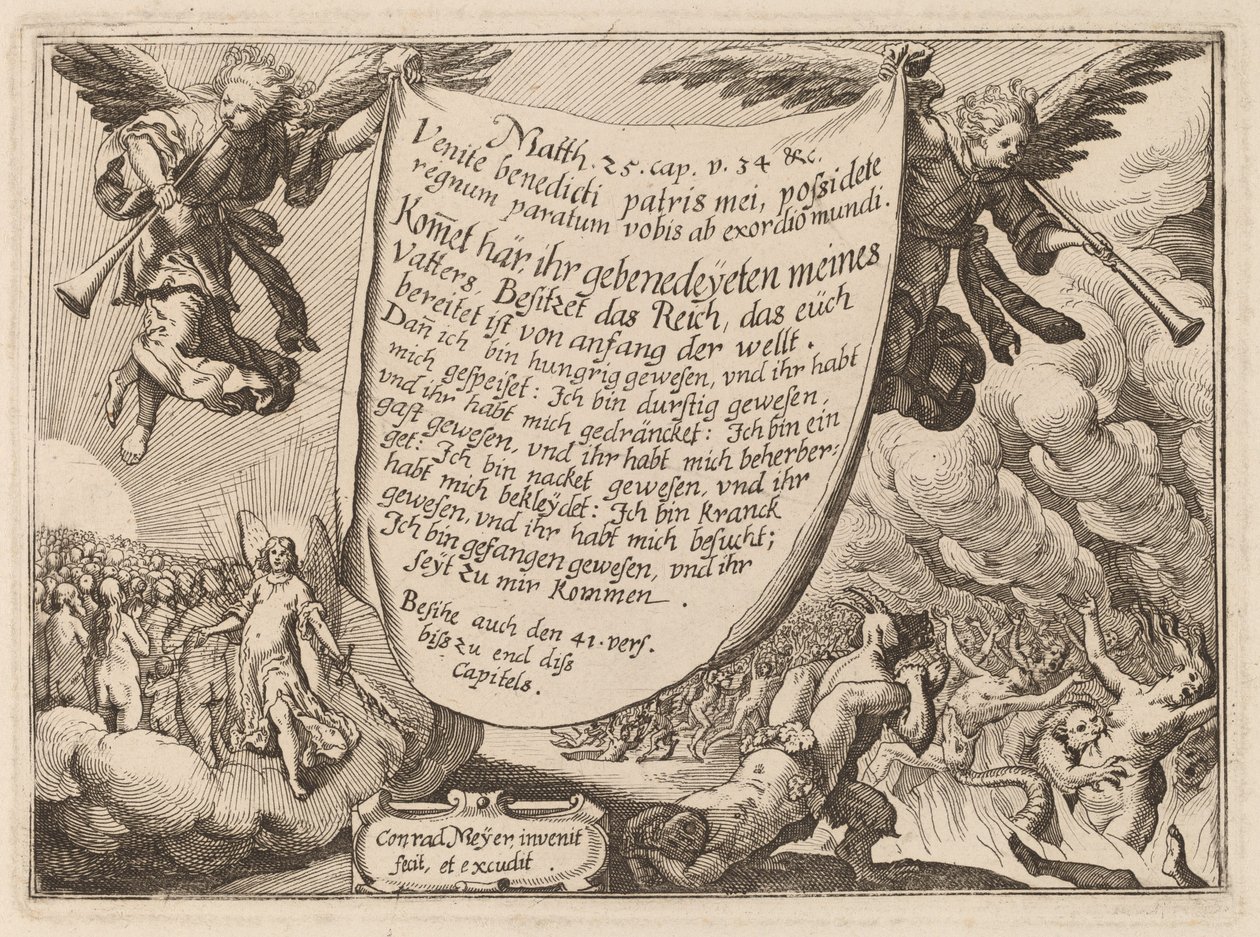 Matth. 25. cap. v. 34 &c.
Venite benedicti patris mei, possidete
regnum paratum vobis ab exordio mundi.
Kom̄et här, ihr gebenedeÿeten meines
Vatters, Besitzet das Reich, das eüch
bereitet ist von anfang der wellt.
Dan̄ ich bin hungrig gewesen, vnd ihr habt
mich gespeiset: Ich bin durstig gewesen,
vnd ihr habt mich gedräncket: Ich bin ein
gast gewesen, vnd ihr habt mich beherber:
get: Ich bin nacket gewesen, vnd ihr
habt mich bekleÿdet: Ich bin kranck
gewesen, vnd ihr habt mich besucht;
Ich bin gefangen gewesen, vnd ihr
seÿt zu mir kommen.
Besihe auch den 41. vers.
biß zu end diß
Capitels.
Conrad Meÿer, invenit
fecit, et excudit.